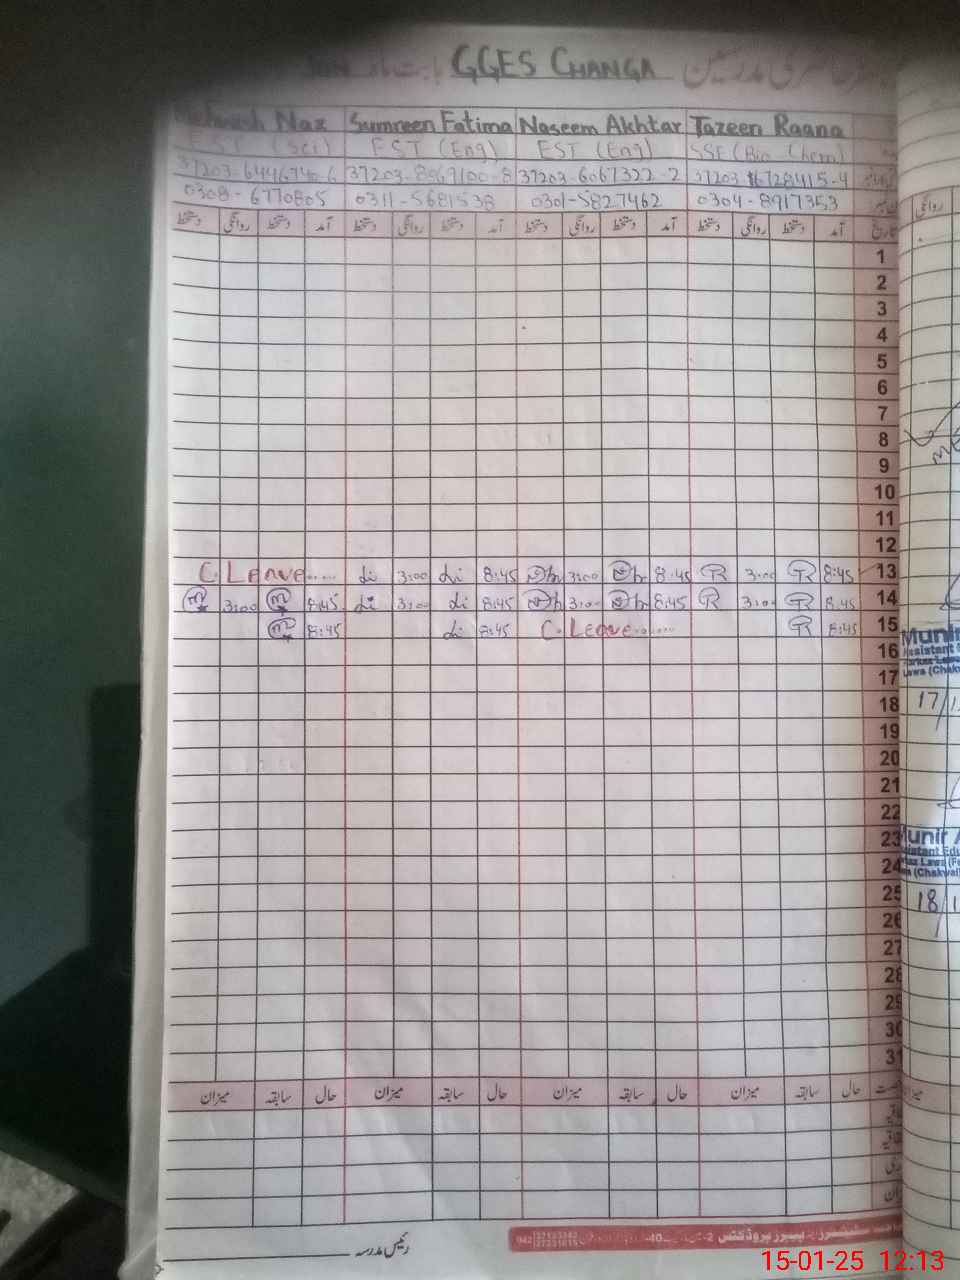 حاضری مدرسین GGES CHANGA بابت ماہ
Mehwish Naz Sumreen Fatima Naseem Akhtar Tazeen Raana
EST (Sci) EST (Eng) EST (Eng) SSE (Bio-Chem)
37203-6446740-6 37203-8969100-8 37203-6067322-2 37203-6728415-4
0308-6770805 0311-5681538 0301-5827462 0304-8917353
تاریخ آمد دستخط روانگی دستخط آمد دستخط روانگی دستخط آمد دستخط روانگی دستخط آمد دستخط روانگی دستخط
روانگی
1
2
3
4
5
6
7
8
9
10
11
12
C. Leave..... 3:00 8:45 3:00 8:45 3:00 8:45 13
3:00 8:45 3:00 8:45 3:00 8:45 3:00 8:45 14
8:45 8:45 C. Leave........ 8:45 15
16
17
18
19
20
21
22
23
24
25
26
27
28
29
30
31
Munir
Assistant
Lawa (Chak
17/1
Munir A
Assistant Edu
Markaz Lawa (Fe
Lawa (Chakwal
18/1
حال سابقہ میزان حال سابقہ میزان حال سابقہ میزان حال سابقہ میزان
میزان
رئیس مدرسہ
پیپرز پروڈکٹس
15-01-25 12:13